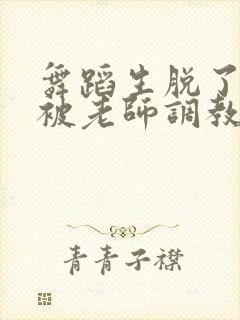 舞蹈生脱了
被老師調教
青青子襟